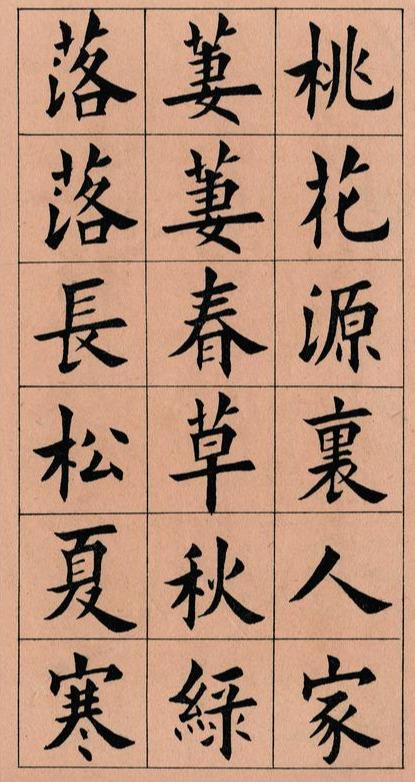 桃花源裏人家
萋萋春草秋綠
落落長松夏寒